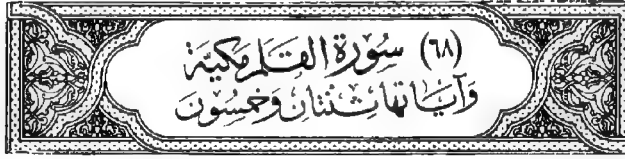 (٦٨) سُورَة القَلَم مَكيَّة
وَآيَاتهَا ثنْتَان وَخمسُون